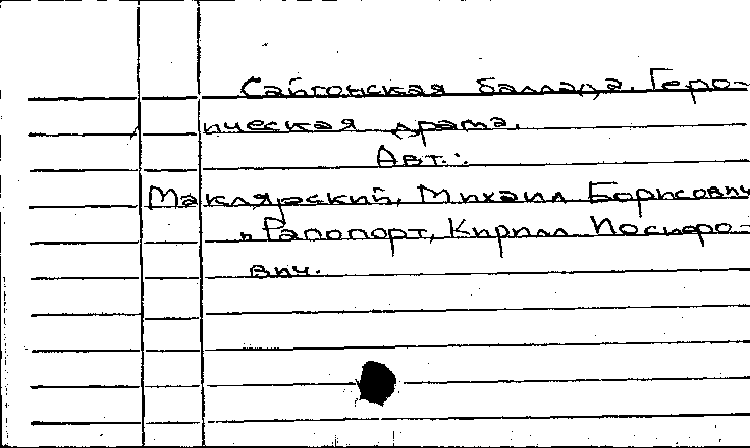 Сайгонская баллада. Геро-
ическая драма.
Авт.:
Маклярский, Михаил Борисович
и Рапопорт, Кирилл Иосифо-
вич.